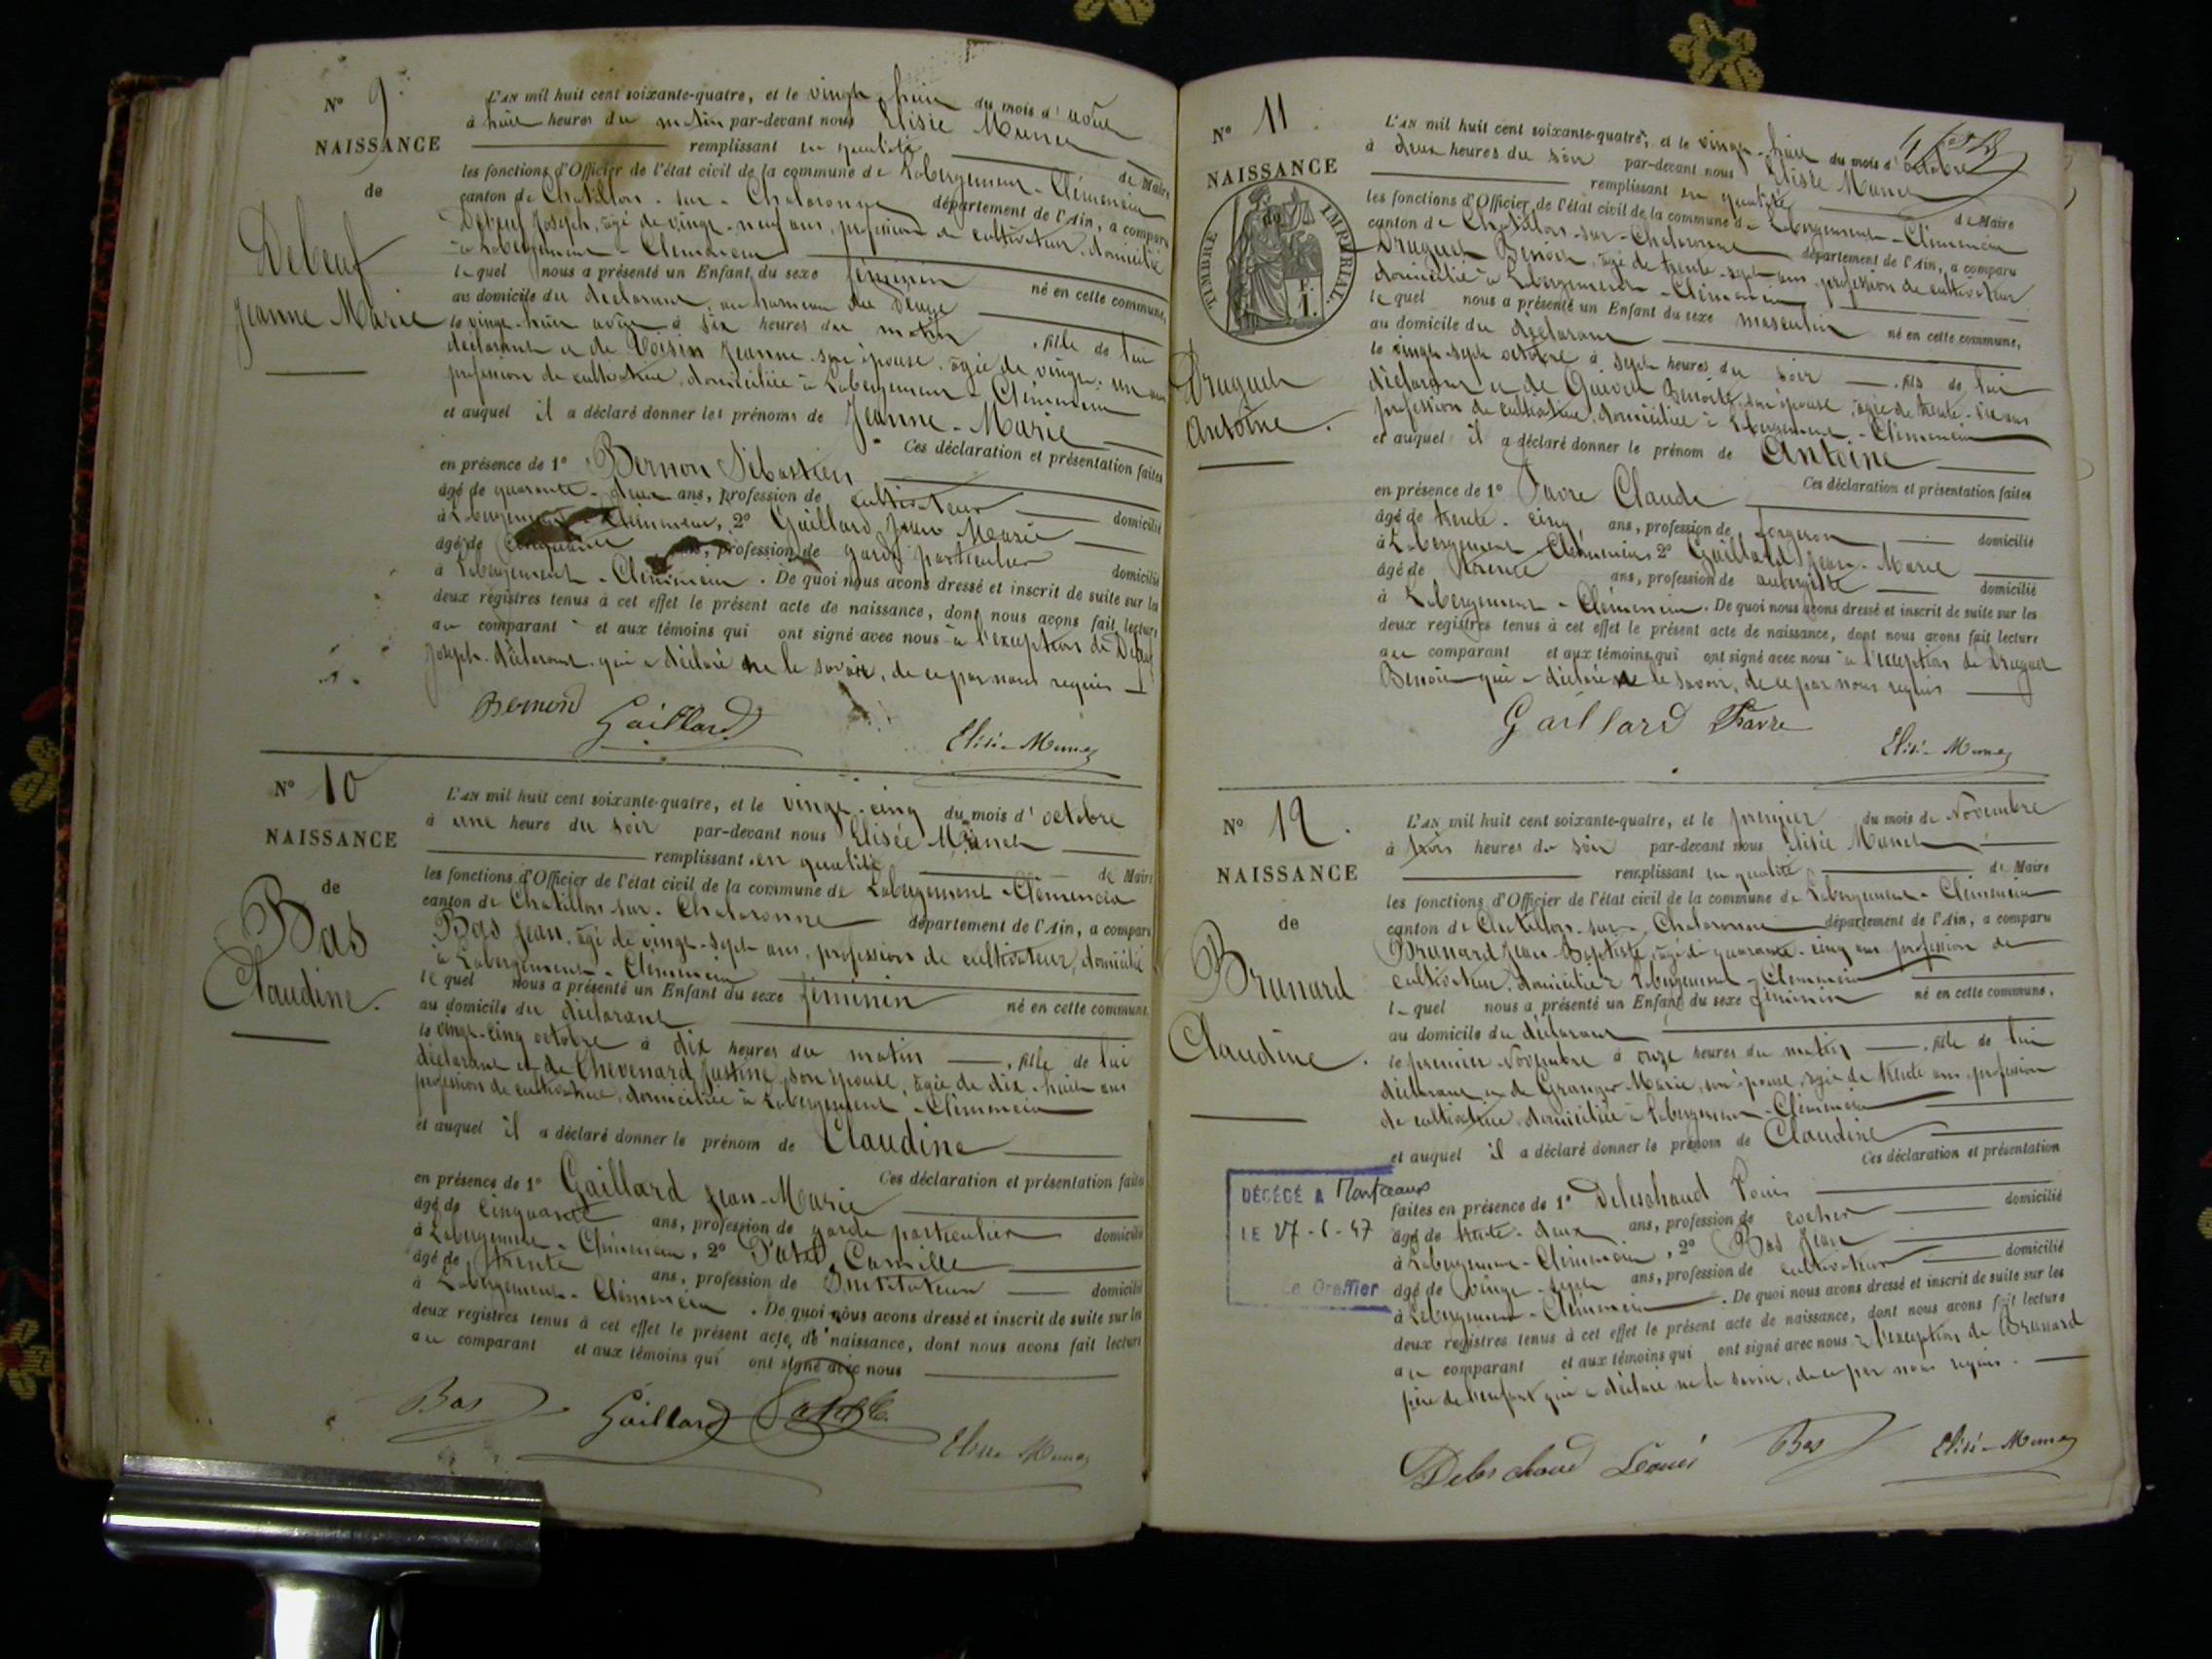 N° 9
NAISSANCE
de
Debeuf
Jeanne Marie
L'AN mil huit cent soixante-quatre, et le vingt-huit du mois d'août
à huit heures du matin par-devant nous Elisée
remplissant en qualité de Maire
les fonctions d'Officier de l'état civil de la commune de Labergement-Clémencia
canton de Chatillon-sur-Chalaronne département de l'Ain, a comparu
Debeuf Joseph, âgé de vingt-neuf ans, profession de cultivateur, domicilié
à Labergement-Clémencia
lequel nous a présenté un Enfant du sexe féminin né en cette commune,
au domicile du déclarant, au hameau du
le vingt-huit août à six heures du matin, fille de lui
déclarant et de Voisin Jeanne son épouse, âgée de vingt-un ans
profession de cultivatrice, domiciliée à Labergement-Clémencia
et auquel il a déclaré donner les prénoms de Jeanne-Marie
Ces déclaration et présentation faites
en présence de 1° Bernon Sébastien
âgé de quarante-deux ans, profession de cultivateur domicilié
à Labergement-Clémencia, 2° Gaillard Jean Marie
âgé de cinquante ans, profession de garde particulier domicilié
à Labergement-Clémencia. De quoi nous avons dressé et inscrit de suite sur les
deux registres tenus à cet effet le présent acte de naissance, dont nous avons fait lecture
au comparant et aux témoins qui ont signé avec nous à l'exception de Debeuf
Joseph déclarant qui a déclaré ne le savoir, de ce par nous requis
Bernon Gaillard
N° 10
NAISSANCE
de
Bas
Claudine.
L'AN mil huit cent soixante-quatre, et le vingt-cinq du mois d'octobre
à une heure du soir par-devant nous Elisée
remplissant en qualité de Maire
les fonctions d'Officier de l'état civil de la commune de Labergement-Clémencia
canton de Chatillon-sur-Chalaronne département de l'Ain, a comparu
Bas Jean, âgé de vingt-sept ans, profession de cultivateur, domicilié
à Labergement-Clémencia
lequel nous a présenté un Enfant du sexe féminin né en cette commune,
au domicile du déclarant
le vingt-cinq octobre à dix heures du matin, fille de lui
déclarant et de Chevenard Justine, son épouse, âgée de dix-huit ans
profession de cultivatrice, domiciliée à Labergement-Clémencia
et auquel il a déclaré donner le prénom de Claudine
Ces déclaration et présentation faites
en présence de 1° Gaillard Jean-Marie
âgé de cinquante ans, profession de garde particulier domicilié
à Labergement-Clémencia, 2° Camille
âgé de trente ans, profession de Instituteur domicilié
à Labergement-Clémencia. De quoi nous avons dressé et inscrit de suite sur les
deux registres tenus à cet effet le présent acte de naissance, dont nous avons fait lecture
au comparant et aux témoins qui ont signé avec nous
Bas Gaillard
N° 11
NAISSANCE
de
TIMBRE IMPÉRIAL.
F. 1.
Druguet
Antoine.
L'AN mil huit cent soixante-quatre, et le vingt-huit du mois d'octobre
à deux heures du soir par-devant nous Elisée
remplissant en qualité de Maire
les fonctions d'Officier de l'état civil de la commune de Labergement-Clémencia
canton de Chatillon-sur-Chalaronne département de l'Ain, a comparu
Druguet Benoit, âgé de trente-sept ans, profession de cultivateur
domicilié à Labergement-Clémencia
lequel nous a présenté un Enfant du sexe masculin né en cette commune,
au domicile du déclarant
le vingt-sept octobre à sept heures du soir, fils de lui
déclarant et de Benoite, son épouse, âgée de trente-six ans
profession de cultivatrice, domiciliée à Labergement-Clémencia
et auquel il a déclaré donner le prénom de Antoine
Ces déclaration et présentation faites
en présence de 1° Favre Claude
âgé de trente-cinq ans, profession de forgeron domicilié
à Labergement-Clémencia 2° Gaillard Jean-Marie
âgé de trente ans, profession de aubergiste domicilié
à Labergement-Clémencia. De quoi nous avons dressé et inscrit de suite sur les
deux registres tenus à cet effet le présent acte de naissance, dont nous avons fait lecture
au comparant et aux témoins qui ont signé avec nous à l'exception de Druguet
Benoit qui a déclaré ne le savoir, de ce par nous requis
Gaillard Favre
N° 12.
NAISSANCE
de
Brunard
Claudine.
L'AN mil huit cent soixante-quatre, et le premier du mois de Novembre
à trois heures du soir par-devant nous Elisée
remplissant en qualité de Maire
les fonctions d'Officier de l'état civil de la commune de Labergement-Clémencia
canton de Chatillon-sur-Chalaronne département de l'Ain, a comparu
Brunard Jean-Baptiste, âgé de quarante-cinq ans profession de
cultivateur, domicilié à Labergement-Clémencia
lequel nous a présenté un Enfant du sexe féminin né en cette commune,
au domicile du déclarant
le premier Novembre à onze heures du matin, fille de lui
déclarant et de Granger Marie, son épouse, âgée de trente ans profession
de cultivatrice domiciliée à Labergement-Clémencia
et auquel il a déclaré donner le prénom de Claudine
Ces déclaration et présentation
faites en présence de 1° Deleschaud Louis
âgé de trente-deux ans, profession de cocher domicilié
à Labergement-Clémencia, 2° Bas Jean
âgé de vingt-sept ans, profession de cultivateur domicilié
à Labergement-Clémencia. De quoi nous avons dressé et inscrit de suite sur les
deux registres tenus à cet effet le présent acte de naissance, dont nous avons fait lecture
au comparant et aux témoins qui ont signé avec nous à l'exception de Brunard
père de l'enfant qui a déclaré ne le savoir, de ce par nous requis.
DÉCÉDÉ A Montceaux
LE 27-6-47
Le Greffier
Deleschaud Louis Bas